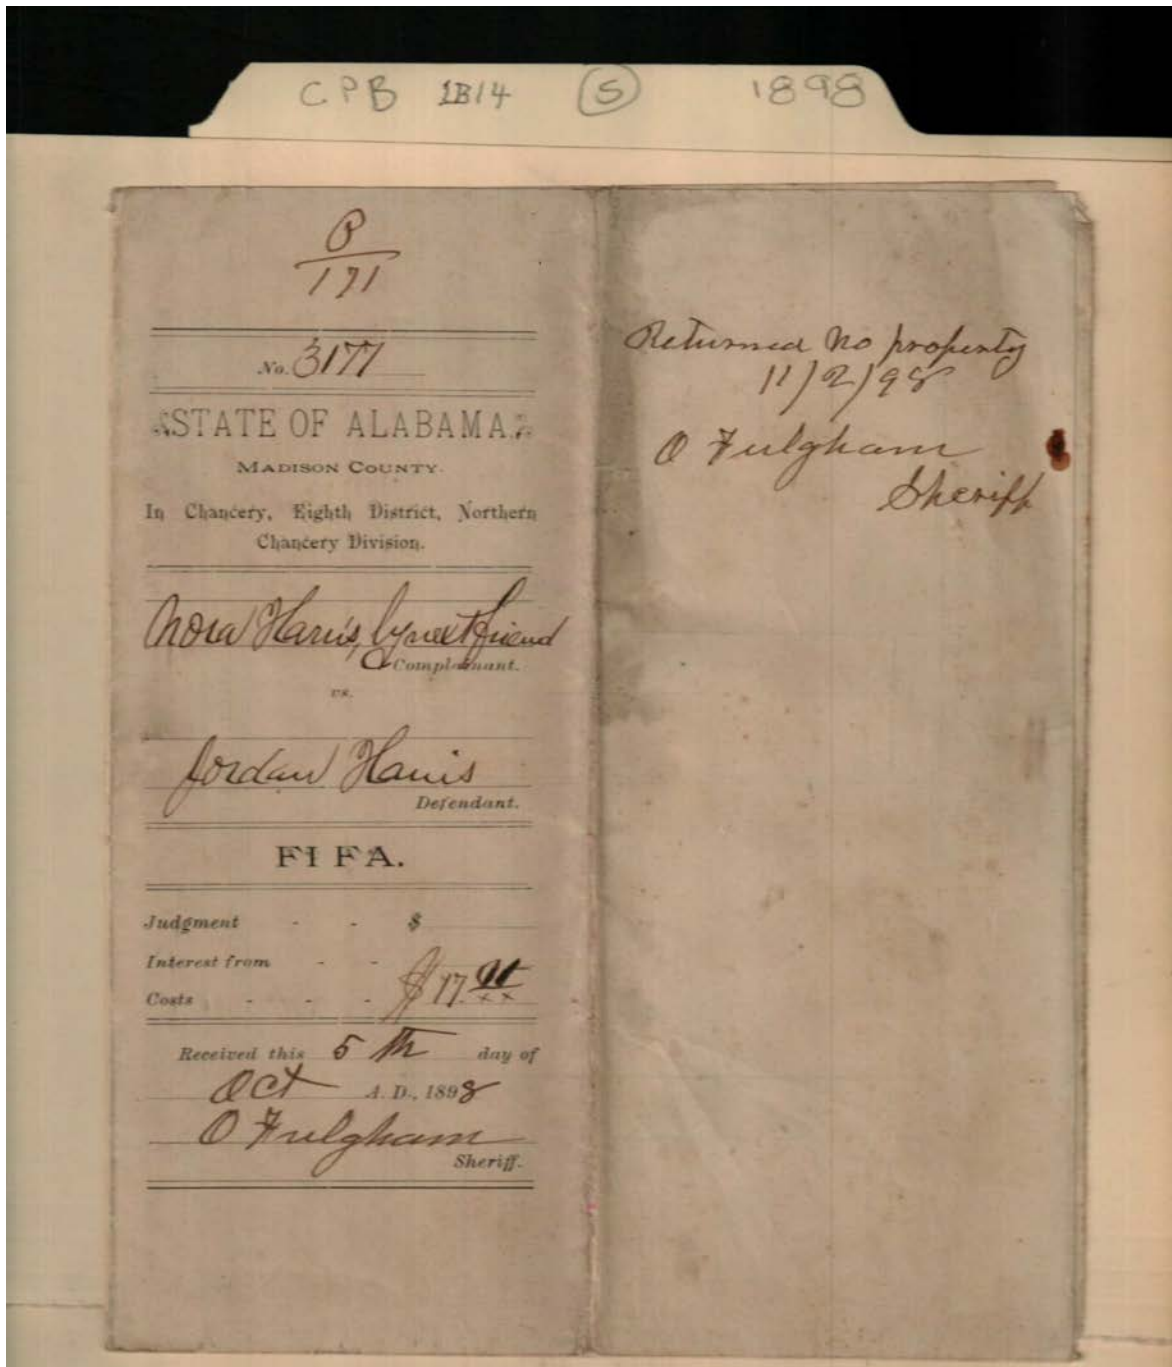 CPB 1B14 (5) 1898
P
171
No. 3177
STATE OF ALABAMA.
MADISON COUNTY.
In Chancery, Eighth District, Northern
Chancery Division.
Nora Harris, by next friend
Complainant.
vs.
Jordan Harris
Defendant.
FI FA.
Judgment - - $
Interest from - -
Costs - - - $17.
xx
Received this 5 th day of
Oct A. D., 1898
O Fulgham
Sheriff.
Returned No property
11/2/98
O Fulgham
Sheriff